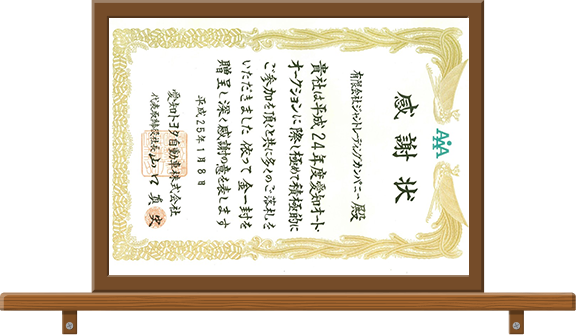 AAA
感謝状
有限会社ジャントレーディングカンパニー殿
貴社は平成24年度愛知オート・
オークションに際し極めて積極的に
ご参加を頂くと共に多くのご落札を
いただきました 依って金一封を
贈呈し深く感謝の意を表します
平成25年1月8日
愛知トヨタ自動車株式会社
代表取締役社長 山口真史